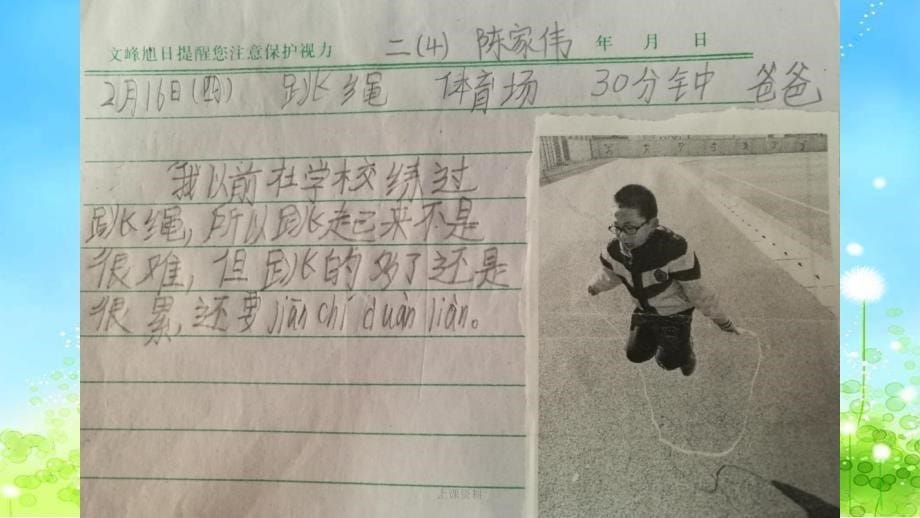 文峰旭日提醒您注意保护视力 二(4) 陈家伟 年 月 日
2月16日(四) 跳绳 体育场 30分钟 爸爸
我以前在学校练过
跳绳,所以跳起来不是
很难,但跳的多了还是
很累,还要jiān chí duàn liàn。
上课资料